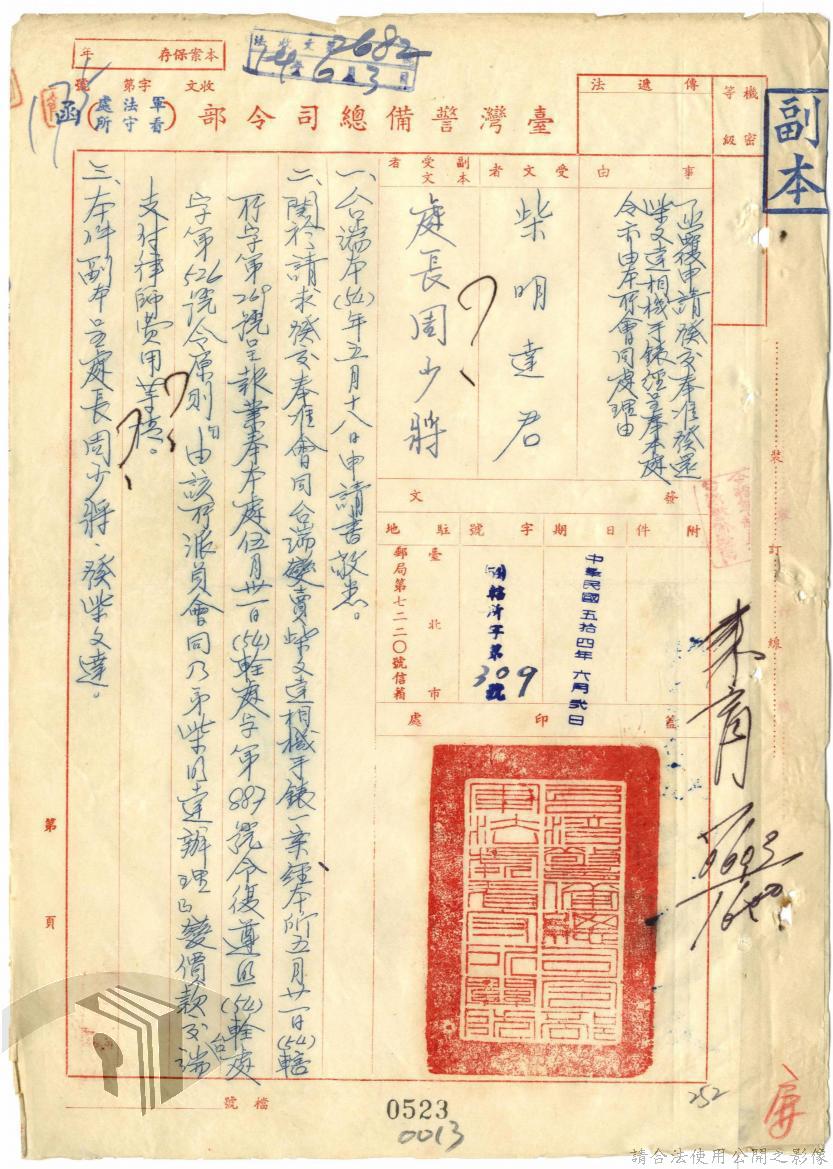 副本
機密等級
傳遞法
臺灣警備總司令部
(軍法處看守所)函
收文 字第 號
本案保存 年
2682
54 6 3
事由
函覆申請發交奉准發還
柴文達相機手錶經呈奉本處
令亦由本所會同處理由
受文者
柴明達君
副本受文者
處長周少將
發文
附件
日期
中華民國五拾四年六月弍日
字號
(54)轄所字第
309號
駐地
臺北市
郵局第七二二〇號信箱
蓋印處
一、台端本(54)年五月十八日申請書敬悉。
二、關於請求發交奉准會同台端變賣柴文達相機手錶一案經本所五月廿一日(54)轄
所字第269號呈報業奉本處伍月廿一日(54)輇處字第887號令復遵照(54)輇處
字第526號令原則「由該所派員會同乃弟柴明達辦理」變價款交台端
支付律師費用等情。
三、本件副本呈處長周少將、發柴文達。
裝訂線
第 頁
檔號
0523
0013
252
請合法使用公開之影像